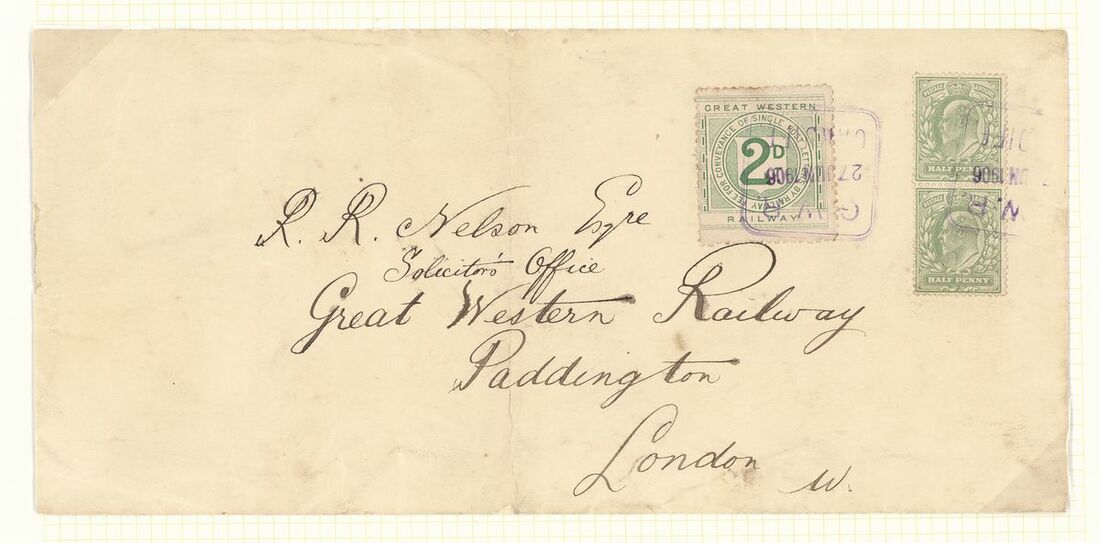 GREAT WESTERN
FEE FOR CONVEYANCE OF SINGLE POST LETTERS BY RAILWAY
2D
RAILWAY
G.W.R
27 JUN 1906
HALF PENNY
HALF PENNY
JUN 1906
W.R
R. R. Nelson Esqre
Solicitor's Office
Great Western Railway
Paddington
London W.